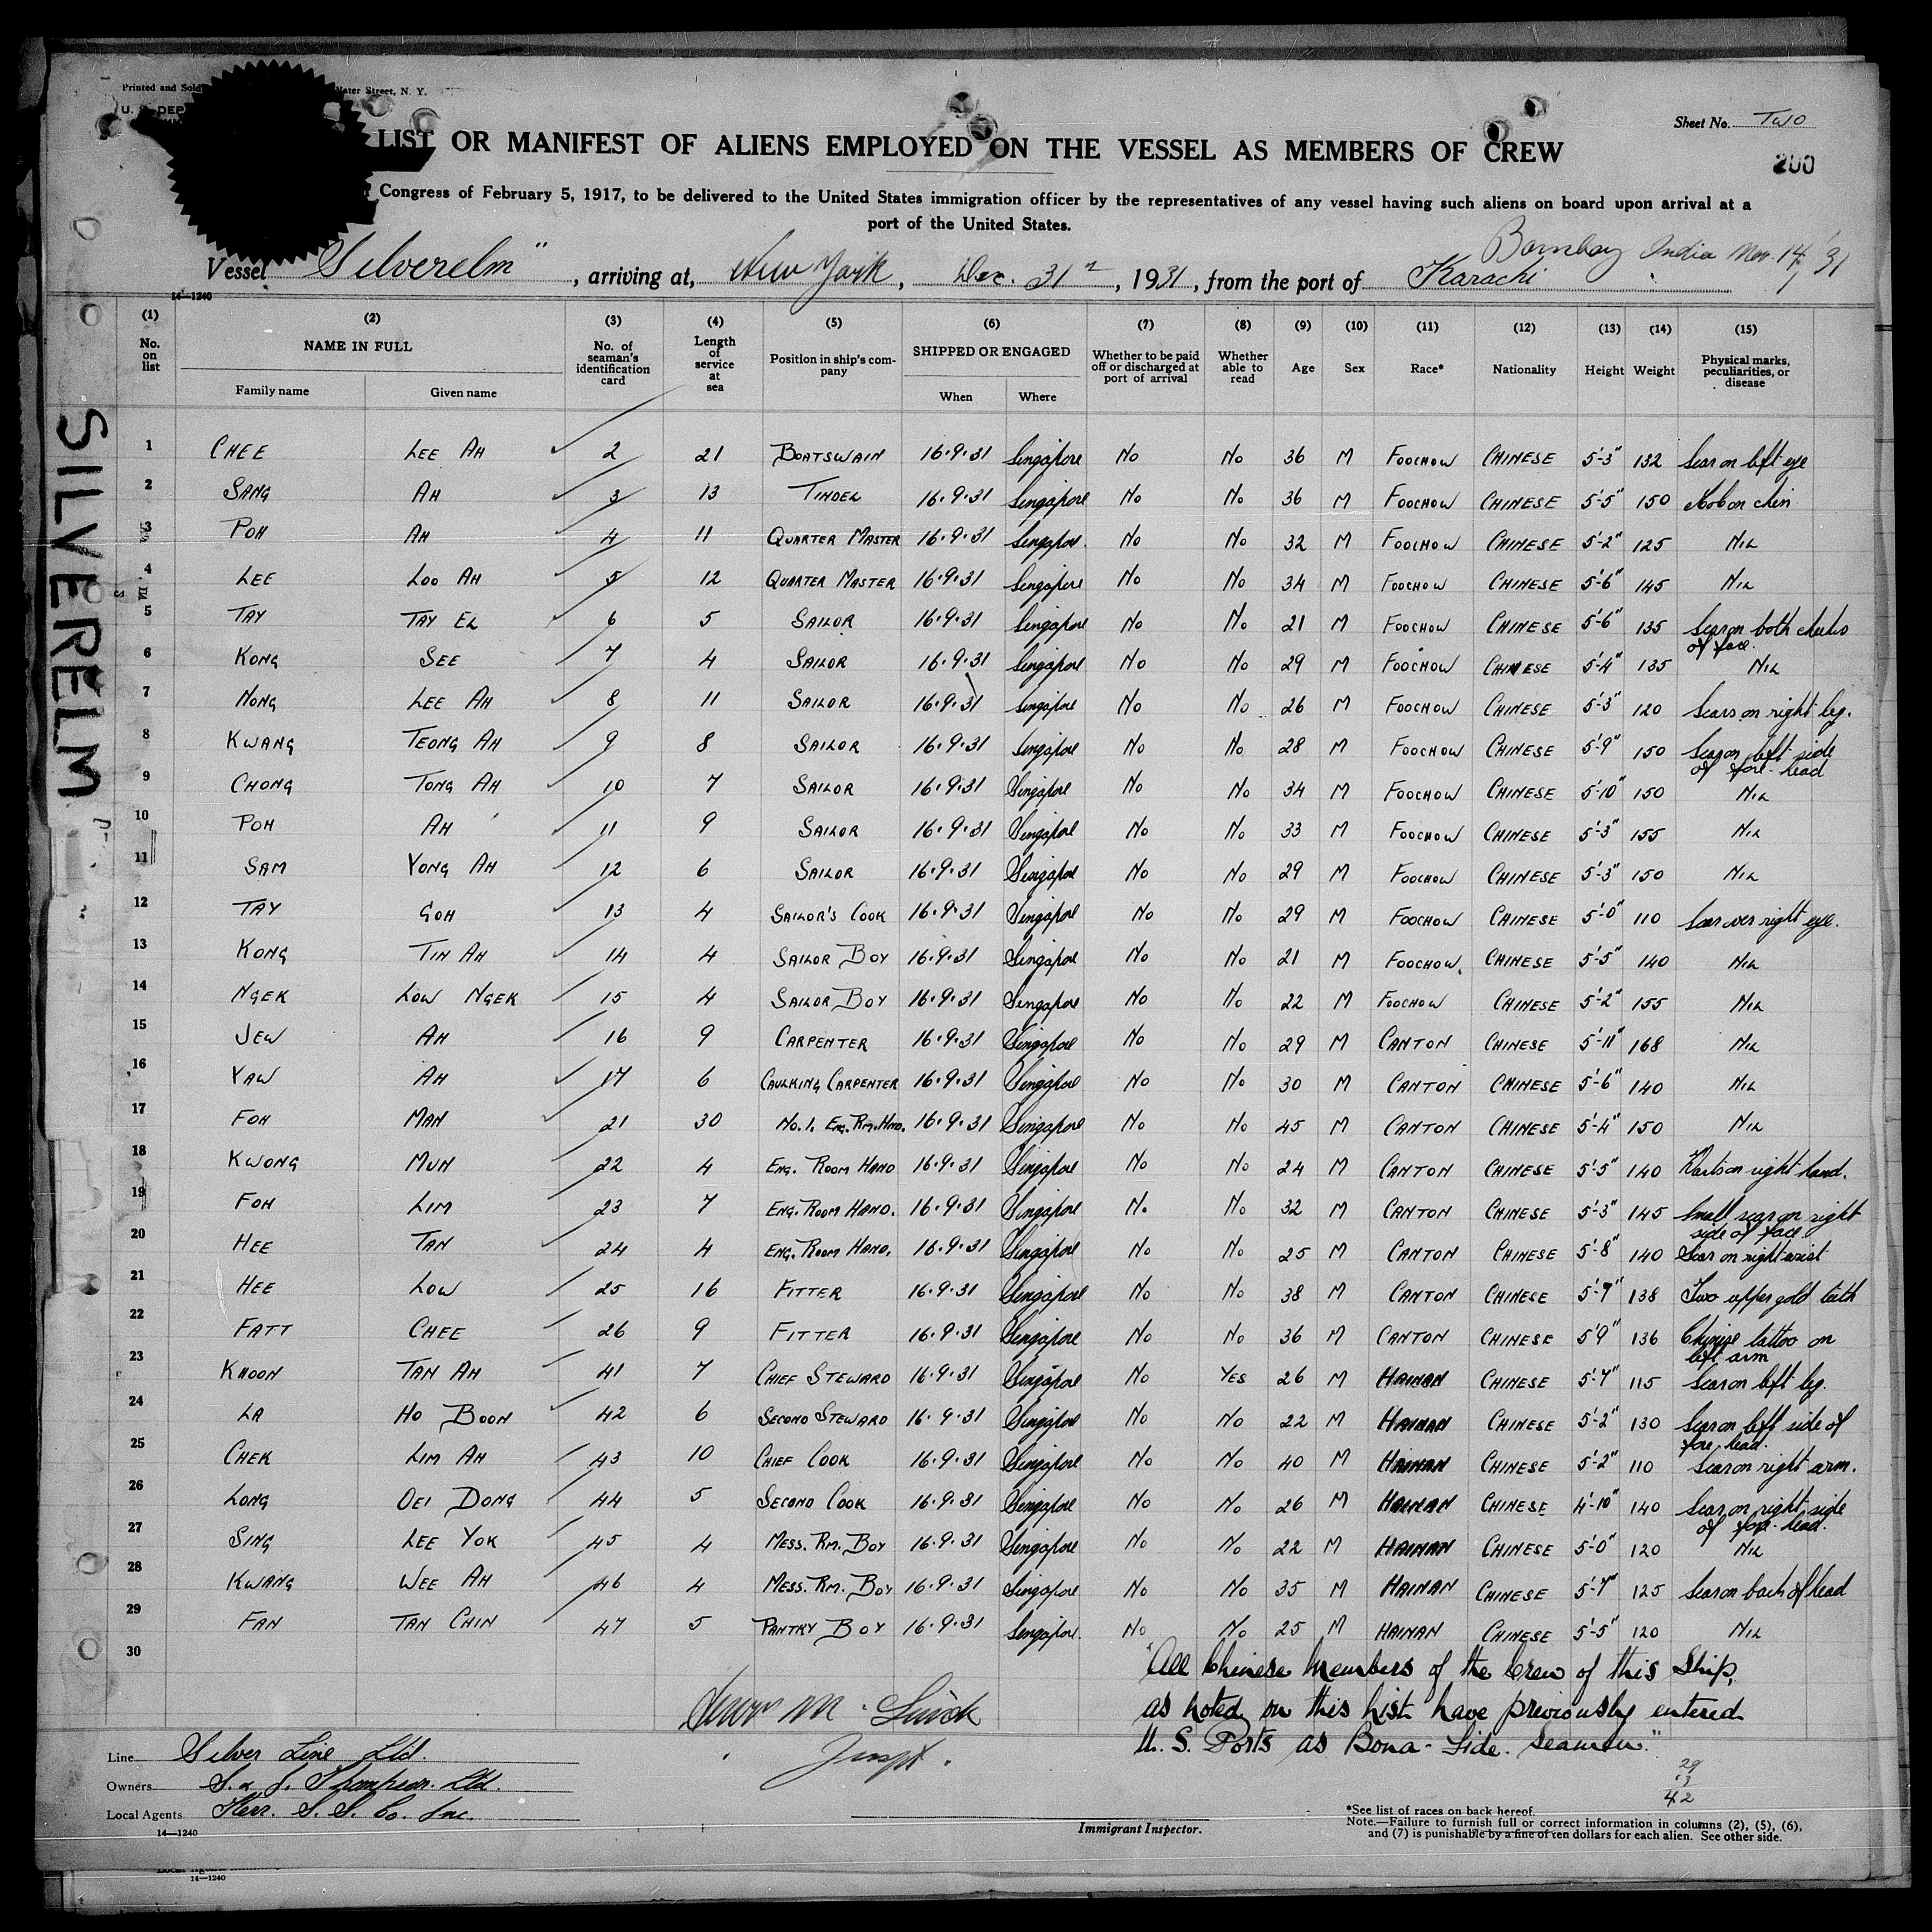 Printed and Sold Water Street, N. Y.
U. S. DEP
Sheet No. Two
LIST OR MANIFEST OF ALIENS EMPLOYED ON THE VESSEL AS MEMBERS OF CREW
200
Congress of February 5, 1917, to be delivered to the United States immigration officer by the representatives of any vessel having such aliens on board upon arrival at a
port of the United States.
Bombay India Nov. 14/31
Vessel "Silverelm", arriving at, New York, Dec. 31st, 1931, from the port of Karachi
14—1240
SILVERELM
(1) No. on list (2) NAME IN FULL Family name Given name (3) No. of seaman's identification card (4) Length of service at sea (5) Position in ship's company (6) SHIPPED OR ENGAGED When Where (7) Whether to be paid off or discharged at port of arrival (8) Whether able to read (9) Age (10) Sex (11) Race* (12) Nationality (13) Height (14) Weight (15) Physical marks, peculiarities, or disease
1 CHEE LEE AH 2 21 BOATSWAIN 16.9.31 Singapore No No 36 M FOOCHOW CHINESE 5'-3" 132 Scar on left eye
2 SANG AH 3 13 TINDEL 16.9.31 Singapore No No 36 M FOOCHOW CHINESE 5'-5" 150 Mob on chin
3 POH AH 4 11 QUARTER MASTER 16.9.31 Singapore No No 32 M FOOCHOW CHINESE 5'-2" 125 NIL
4 LEE LOO AH 5 12 QUARTER MASTER 16.9.31 Singapore No No 34 M FOOCHOW CHINESE 5'-6" 145 NIL
5 TAY TAY EL 6 5 SAILOR 16.9.31 Singapore No No 21 M FOOCHOW CHINESE 5'-6" 135 Scar on both cheeks of face.
6 KONG SEE 7 4 SAILOR 16.9.31 Singapore No No 29 M FOOCHOW CHINESE 5'-4" 135 NIL
7 NONG LEE AH 8 11 SAILOR 16.9.31 Singapore No No 26 M FOOCHOW CHINESE 5'-3" 120 Scars on right leg.
8 KWANG TEONG AH 9 8 SAILOR 16.9.31 Singapore No No 28 M FOOCHOW CHINESE 5'-9" 150 Scar on left side of fore-head
9 CHONG TONG AH 10 7 SAILOR 16.9.31 Singapore No No 34 M FOOCHOW CHINESE 5'-10" 150 NIL
10 POH AH 11 9 SAILOR 16.9.31 Singapore No No 33 M FOOCHOW CHINESE 5'-3" 155 NIL
11 SAM YONG AH 12 6 SAILOR 16.9.31 Singapore No No 29 M FOOCHOW CHINESE 5'-3" 150 NIL
12 TAY GOH 13 4 SAILOR'S COOK 16.9.31 Singapore No No 29 M FOOCHOW CHINESE 5'-0" 110 Scar over right eye.
13 KONG TIN AH 14 4 SAILOR BOY 16.9.31 Singapore No No 21 M FOOCHOW. CHINESE 5'-5" 140 NIL
14 NGEK LOW NGEK 15 4 SAILOR BOY 16.9.31 Singapore No No 22 M FOOCHOW CHINESE 5'-2" 155 NIL
15 JEW AH 16 9 CARPENTER 16.9.31 Singapore No No 29 M CANTON CHINESE 5'-11" 168 NIL
16 YAW AH 17 6 CAULKING CARPENTER 16.9.31 Singapore No No 30 M CANTON CHINESE 5'-6" 140 NIL
17 FOH MAN 21 30 No. 1. ENG. RM. HND. 16.9.31 Singapore No No 45 M CANTON CHINESE 5'-4" 150 NIL
18 KWONG MUN 22 4 ENG. ROOM HAND 16.9.31 Singapore No No 24 M CANTON CHINESE 5'-5" 140 Warts on right hand.
19 FOH LIM 23 7 ENG. ROOM HAND. 16.9.31 Singapore No No 32 M CANTON CHINESE 5'-3" 145 Small scar on right side of face.
20 HEE TAN 24 4 ENG. ROOM HAND. 16.9.31 Singapore No No 25 M CANTON CHINESE 5'-8" 140 Scar on right wrist
21 HEE LOW 25 16 FITTER 16.9.31 Singapore No No 38 M CANTON CHINESE 5'-7" 138 Two upper gold teeth
22 FATT CHEE 26 9 FITTER 16.9.31 Singapore No No 36 M CANTON CHINESE 5'9" 136 Chinese tattoo on left arm
23 KHOON TAN AH 41 7 CHIEF STEWARD 16.9.31 Singapore No YES 26 M HAINAN CHINESE 5'-7" 115 Scar on left leg.
24 LA HO BOON 42 6 SECOND STEWARD 16.9.31 Singapore No No 22 M HAINAN CHINESE 5'-2" 130 Scar on left side of fore head.
25 CHEK LIM AH 43 10 CHIEF COOK 16.9.31 Singapore No No 40 M HAINAN CHINESE 5'-2" 110 Scar on right arm.
26 LONG OEI DONG 44 5 SECOND COOK 16.9.31 Singapore No No 26 M HAINAN CHINESE 4'-10" 140 Scar on right side of fore-head.
27 SING LEE YOK 45 4 MESS. RM. BOY 16.9.31 Singapore No No 22 M HAINAN CHINESE 5'-0" 120 NIL
28 KWANG WEE AH 46 4 MESS. RM. BOY 16.9.31 Singapore No No 35 M HAINAN CHINESE 5'-7" 125 Scar on back of head
29 FAN TAN CHIN 47 5 PANTRY BOY 16.9.31 Singapore. No No 25 M HAINAN CHINESE 5'-5" 120 NIL
30
"All Chinese Members of the Crew of this Ship,
as noted on this list have previously entered
U. S. Ports as Bona-Fide. Seamen."
Line Silver Line Ltd.
Owners S. & J. Thompson. Ltd.
Local Agents Kerr. S. S. Co. Inc.
14—1240
Immigrant Inspector.
29
13
42
*See list of races on back hereof.
Note.—Failure to furnish full or correct information in columns (2), (5), (6),
and (7) is punishable by a fine of ten dollars for each alien. See other side.
14—1240